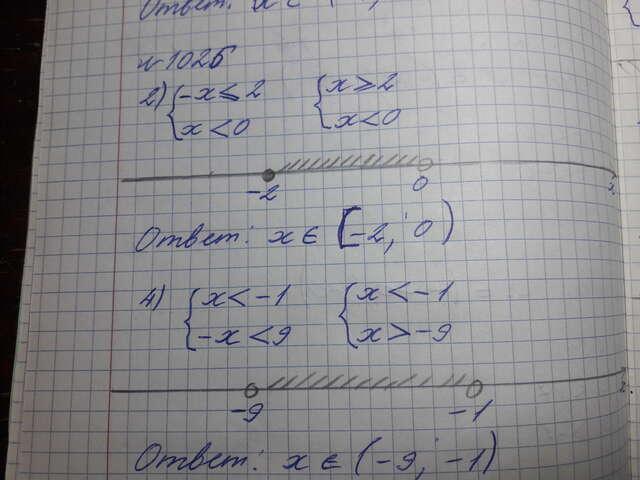 Ответ: x ∈ (
№ 1026
2) { -x ≤ 2 { x ≥ 2
{ x < 0 { x < 0
-2 0
Ответ: x ∈ [-2; 0)
4) { x < -1 { x < -1
{ -x < 9 { x > -9
-9 -1
Ответ: x ∈ (-9; -1)